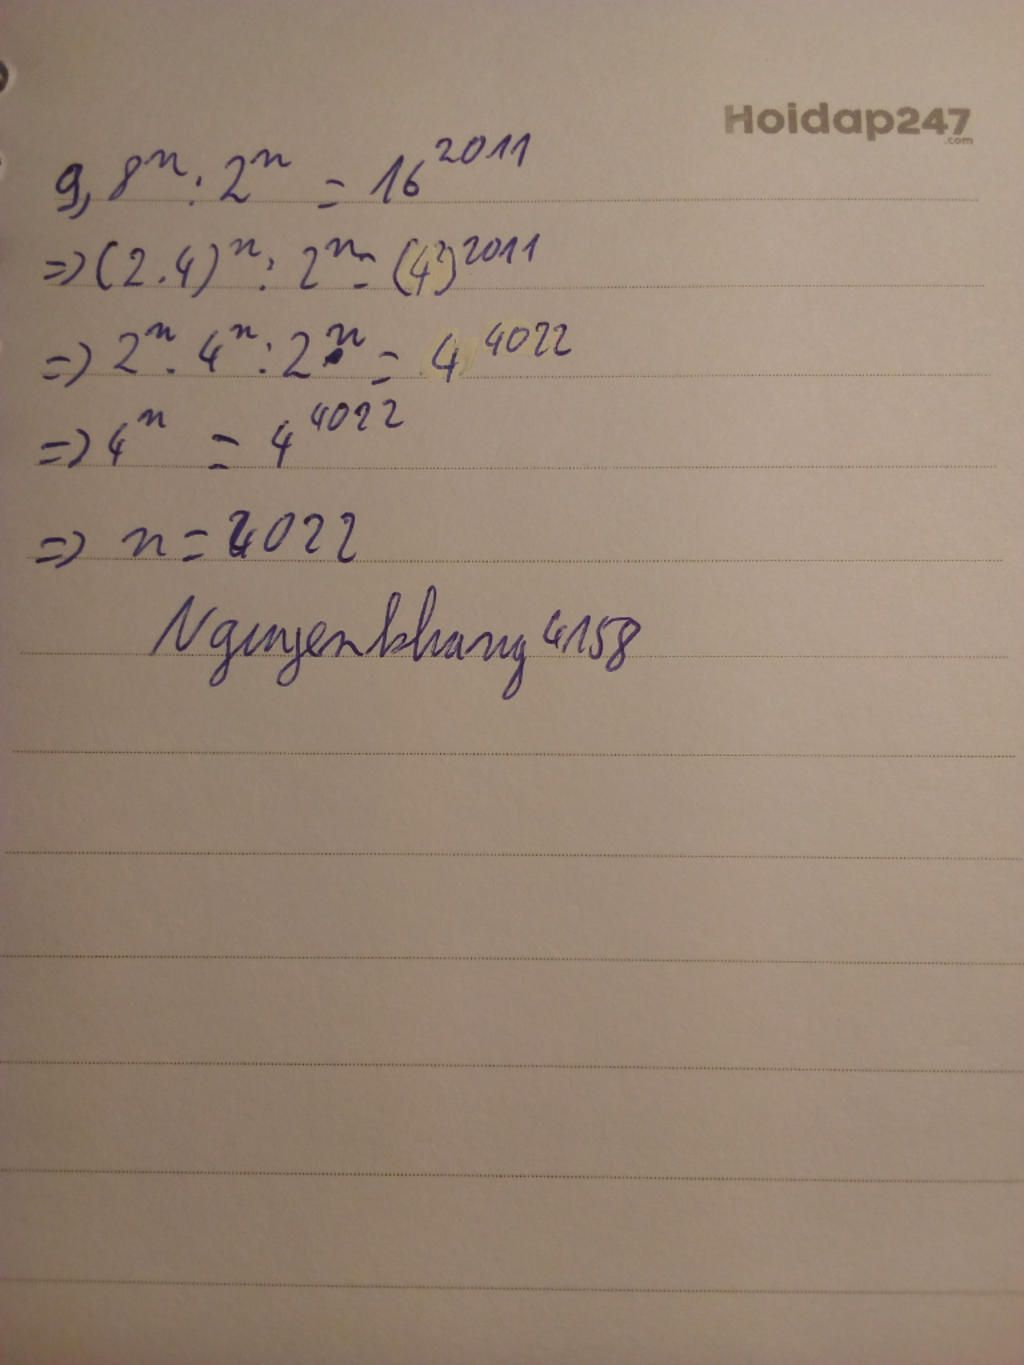 Hoidap247
.com
9, 8ⁿ : 2ⁿ = 16²⁰¹¹
=> (2.4)ⁿ : 2ⁿ = (4²)²⁰¹¹
=> 2ⁿ . 4ⁿ : 2ⁿ = 4⁴⁰²²
=> 4ⁿ = 4⁴⁰²²
=> n = 4022
Nguyenkhang4158